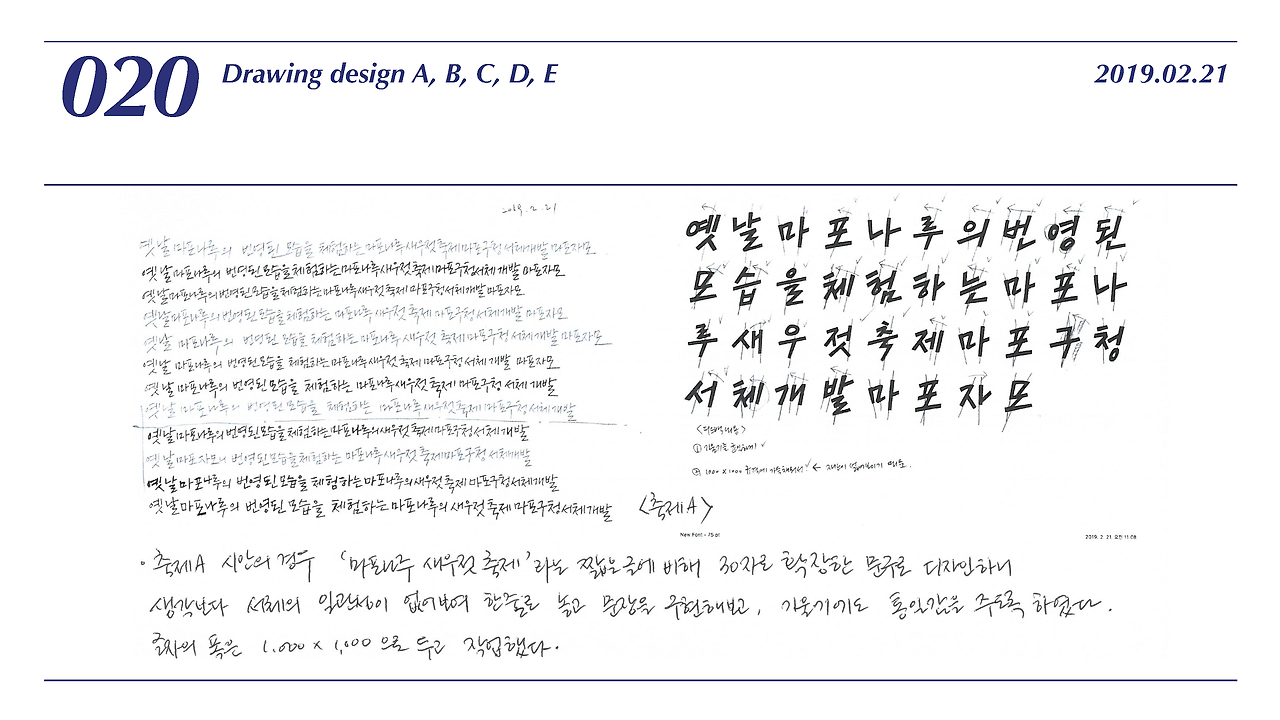 020
Drawing design A, B, C, D, E
2019.02.21
2019.2.21
옛날 마포나루의 번영된 모습을 체험하는 마포나루 새우젓 축제 마포구청 서체개발 마포자모
옛날 마포나루의 번영된 모습을 체험하는 마포나루 새우젓 축제 마포구청 서체개발 마포자모
옛날 마포나루의 번영된 모습을 체험하는 마포나루 새우젓 축제 마포구청 서체개발 마포자모
옛날 마포나루의 번영된 모습을 체험하는 마포나루 새우젓 축제 마포구청 서체개발 마포자모
옛날 마포나루의 번영된 모습을 체험하는 마포나루 새우젓 축제 마포구청 서체개발 마포자모
옛날 마포나루의 번영된 모습을 체험하는 마포나루 새우젓 축제 마포구청 서체개발 마포자모
옛날 마포나루의 번영된 모습을 체험하는 마포나루 새우젓 축제 마포구청 서체개발
옛날 마포나루의 번영된 모습을 체험하는 마포나루 새우젓 축제 마포구청 서체개발
옛날 마포나루의 번영된 모습을 체험하는 마포나루의 새우젓 축제 마포구청 서체개발
옛날 마포자모의 번영된 모습을 체험하는 마포나루 새우젓 축제 마포구청 서체개발
옛날 마포나루의 번영된 모습을 체험하는 마포나루의 새우젓 축제 마포구청 서체개발
옛날 마포나루의 번영된 모습을 체험하는 마포나루의 새우젓 축제 마포구청 서체개발
<축제A>
옛날마포나루의번영된
모습을체험하는마포나
루새우젓축제마포구청
서체개발마포자모
① 기울기를
② 1,000 x 1,000
New Font - 75 pt
2019. 2. 21. 오전 11:08
• 축제A 시안의 경우 '마포나루 새우젓 축제'라는 짧은 글에 비해 30자로 확장한 문구로 디자인하니
생각보다 서체의 일관성이 없어보여 한줄로 놓고 문장을 구현해보고, 기울기에도 통일감을 주도록 하였다.
글자의 폭은 1,000 x 1,000 으로 두고 작업했다.